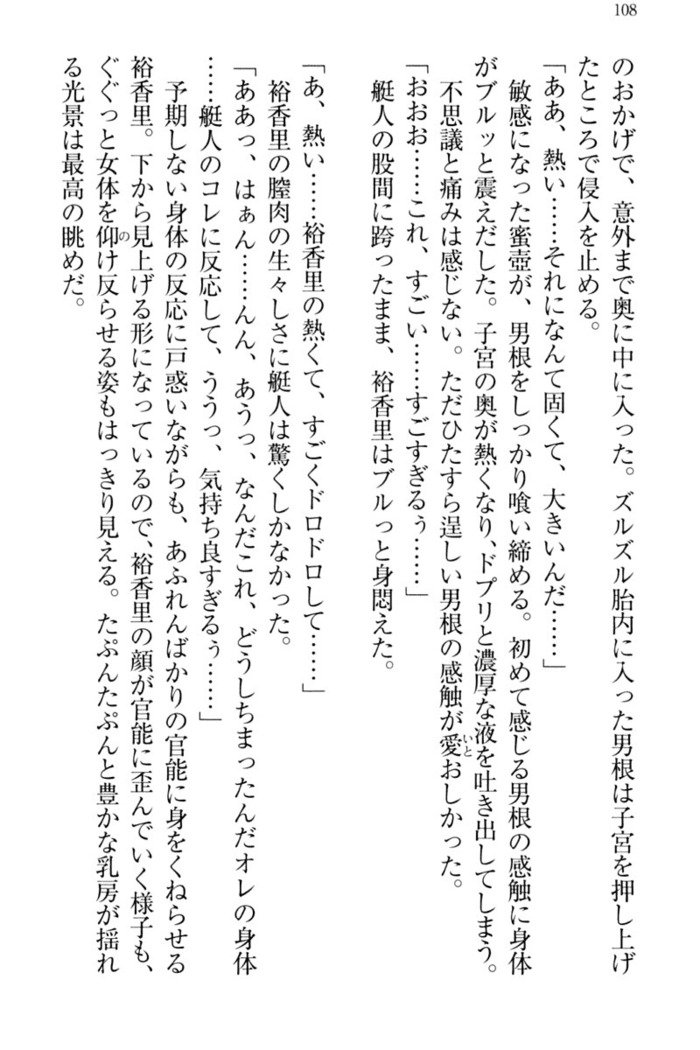 108
のおかげで、意外まで奥に中に入った。ズルズル胎内に入った男根は子宮を押し上げ
たところで侵入を止める。
「ああ、熱い……それになんて固くて、大きいんだ……」
敏感になった蜜壺が、男根をしっかり喰い締める。初めて感じる男根の感触に身体
がブルッと震えだした。子宮の奥が熱くなり、ドプリと濃厚な液を吐き出してしまう。
不思議と痛みは感じない。ただひたすら逞しい男根の感触が愛おしかった。
いと
「おおお……これ、すごい……すごすぎるぅ……」
艇人の股間に跨ったまま、裕香里はブルっと身悶えた。
「あ、熱い……裕香里の熱くて、すごくドロドロして……」
裕香里の膣肉の生々しさに艇人は驚くしかなかった。
「ああっ、はぁん……んん、あうっ、なんだこれ、どうしちまったんだオレの身体
……艇人のコレに反応して、ううっ、気持ち良すぎるぅ……」
予期しない身体の反応に戸惑いながらも、あふれんばかりの官能に身をくねらせる
裕香里。下から見上げる形になっているので、裕香里の顔が官能に歪んでいく様子も、
ぐぐっと女体を仰け反らせる姿もはっきり見える。たぷんたぷんと豊かな乳房が揺れ
の
る光景は最高の眺めだ。